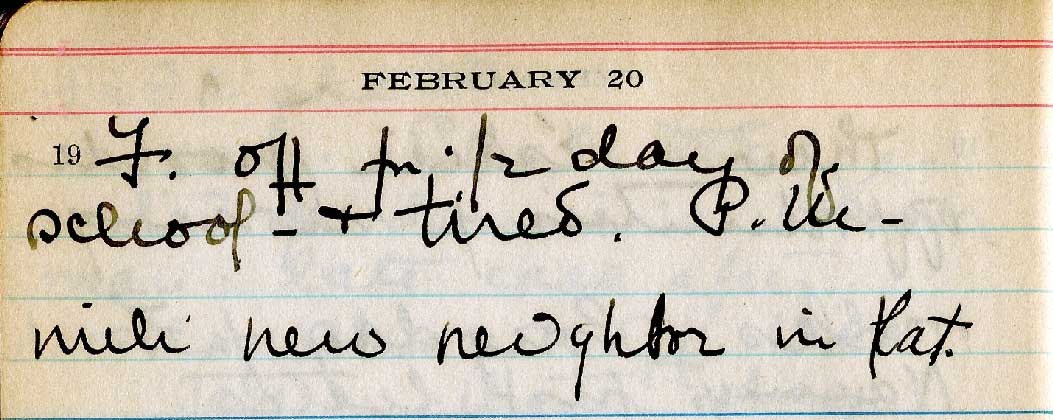 FEBRUARY 20
19 F. off for 1/2 day of
school - & tired. P.M. -
new neighbor in Kat.